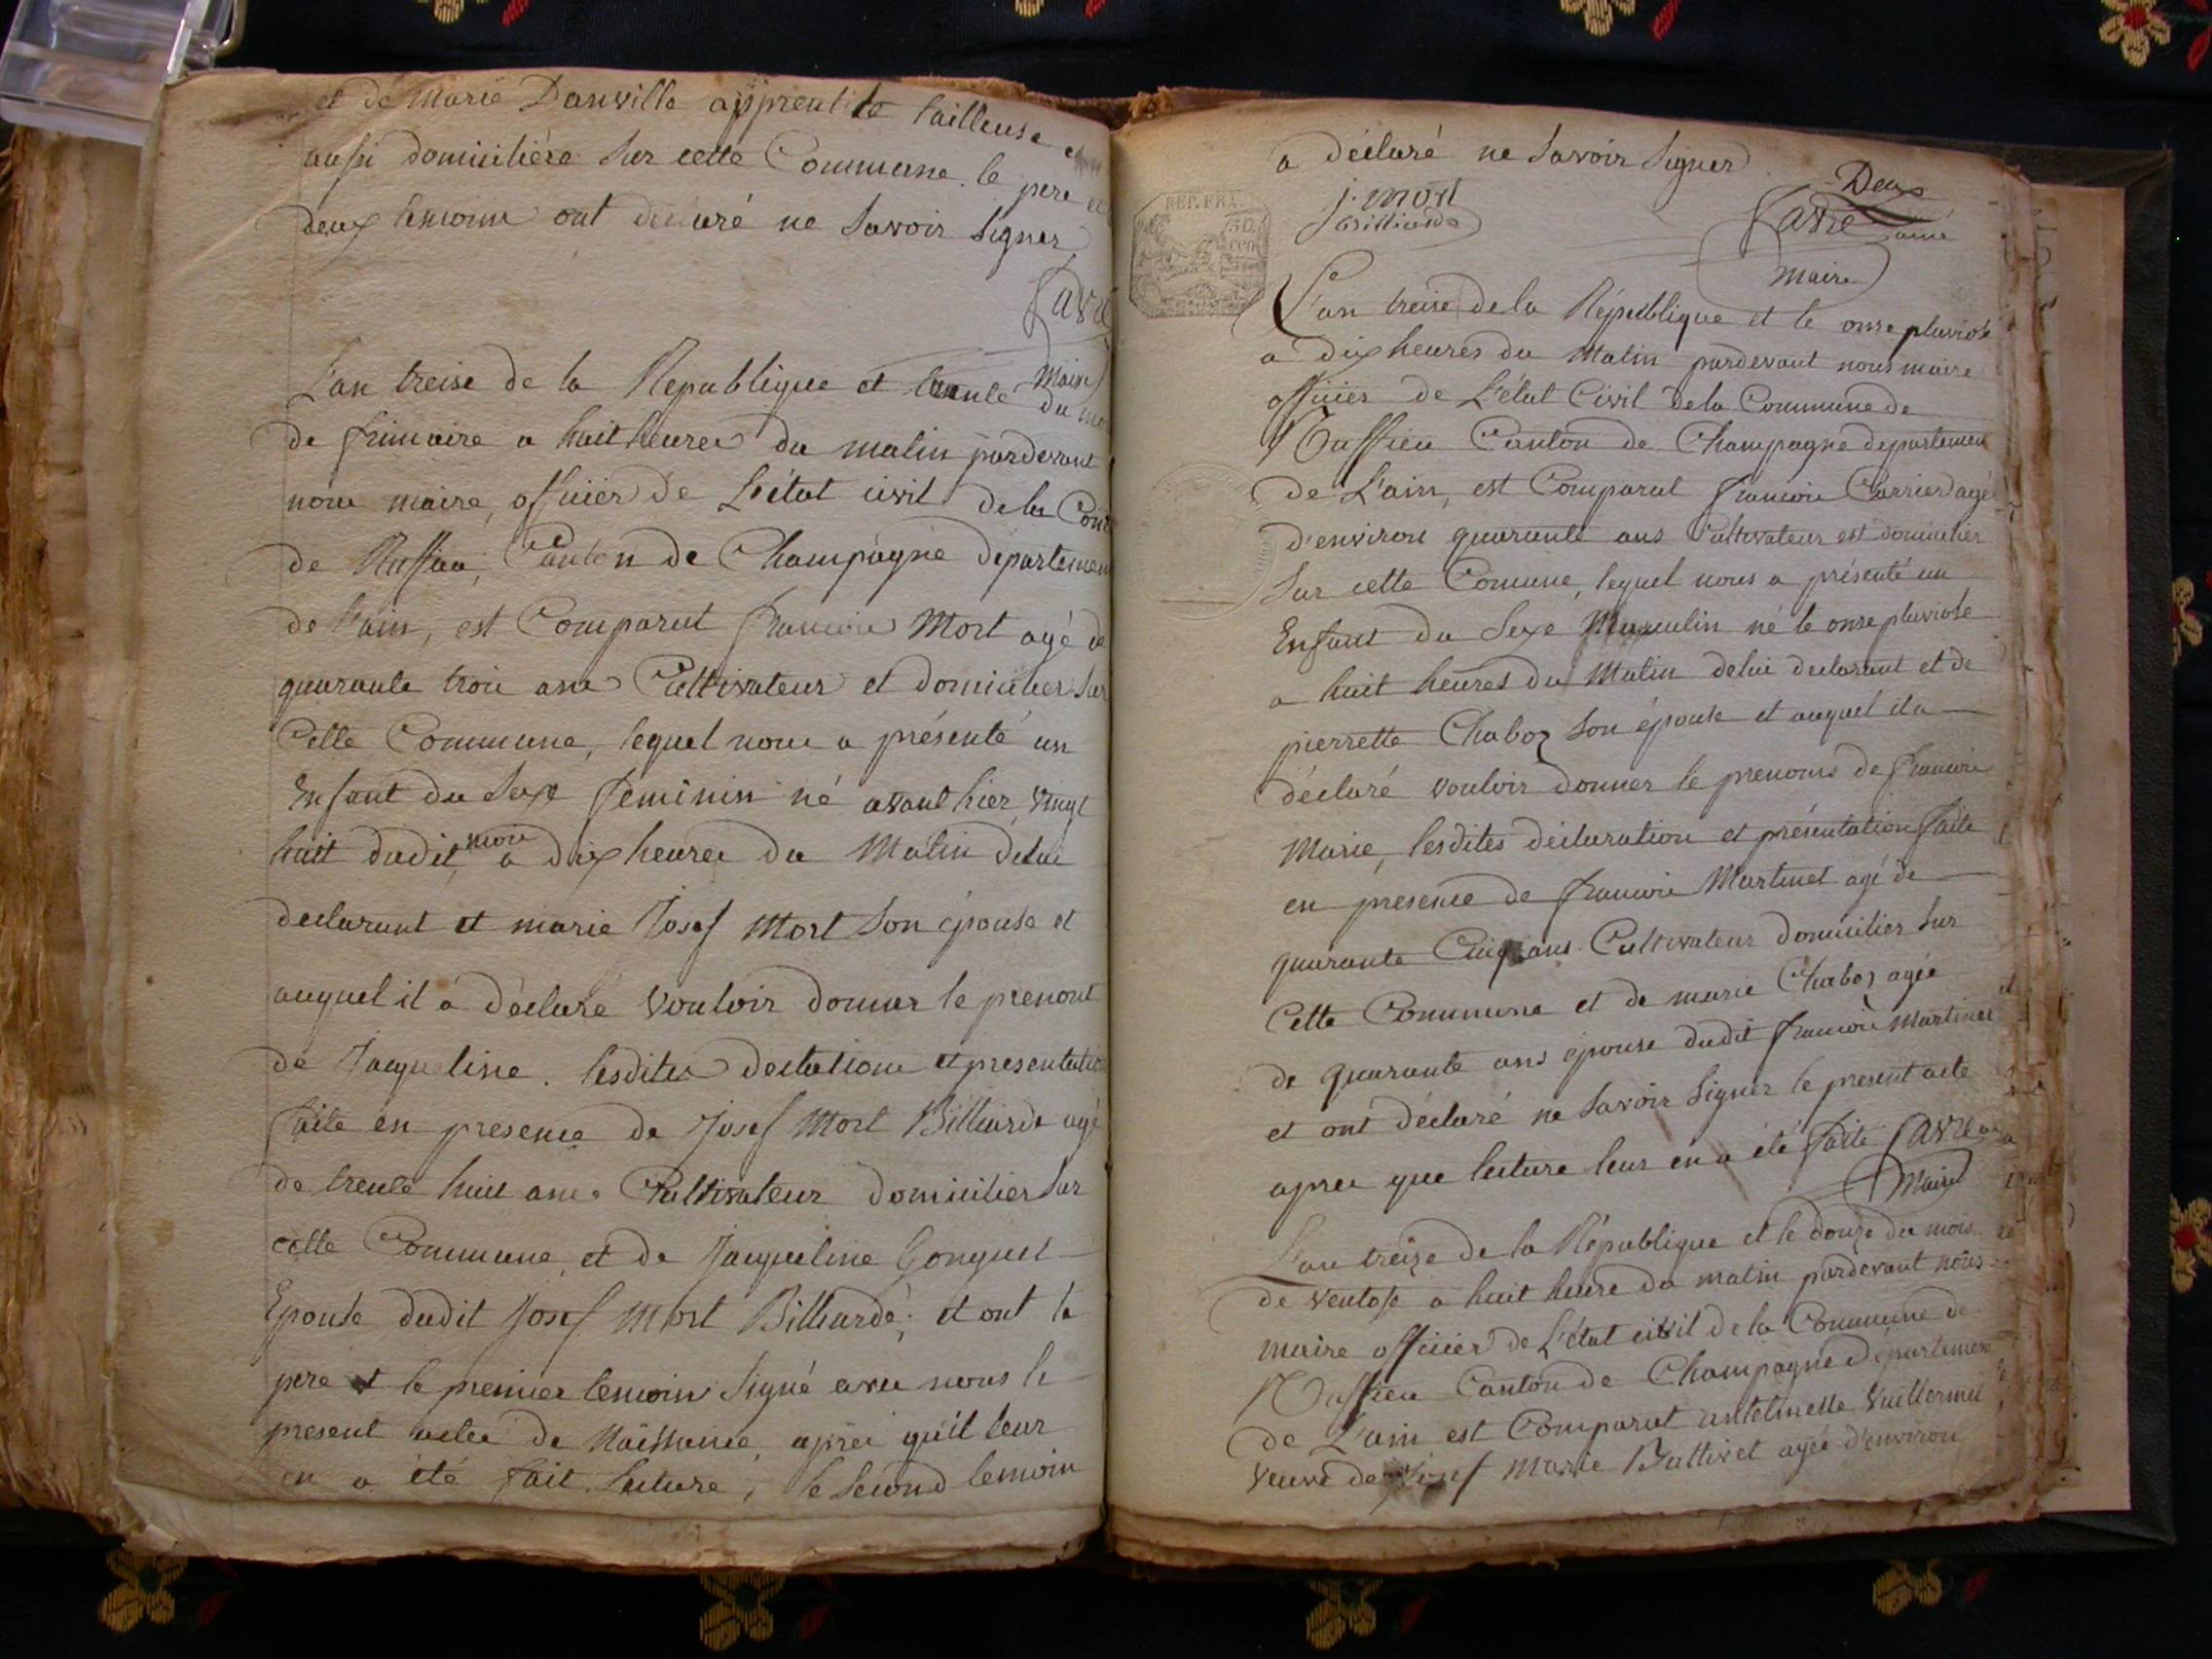 et de Marie Danville apprentise tailleuse et
aussi domicilière sur cette Commune. le pere et
deux temoins ont declaré ne Savoir Signer
favre
Maire
L'an treise de la Republique et trente du mois
de frimaire a huit heures du matin pardevant
nous maire, officier de L'état civil de la Com
de Ruffieu, Canton de Champagne departemen
de l'ain, est Comparut francois Mort agé de
quarante trois ans Cultivateur et domicilier sur
Cette Commune, lequel nous a présenté un
Enfant du Sexe féminin né avant hier vingt
huit dudit mois a dix heures du Matin de lui
declarant et marie Josef Mort Son épouse et
auquel il a déclaré vouloir donner le prenont
de Jacqueline. lesdites declations et presentation
faite en presence de Josef Mort Billiarde agé
de trente huit ans Cultivateur domicilier sur
cette Commune, et de Jacqueline Gonguet
Epouse dudit Josef Mort Billiarde; et ont le
pere et le premier temoin Signé avec nous le
present actes de Naissance, après qu'il leur
en a été fait lecture, le Second temoin
a déclaré ne Savoir Signer
Deux
j. mort
billiarde
favre ainé
maire
REP. FRA.
50
cen
L'an treise de la République et le onse pluviose
a dix heures du Matin pardevant nous maire
officier de L'état Civil de la Commune de
Ruffieu Canton de Champagne departement
de L'ain, est Comparut francois Carrier agé
d'environ quarante ans Cultivateur est domicilier
Sur cette Comune, lequel nous a présenté un
Enfant du Sexe Masculin né le onse pluviose
a huit heures du Matin de lui declarant et de
pierrette Chaboz Son épouse et auquel il a
déclaré vouloir donner le prenoms de francois
Marie, lesdites déclaration et présentation faite
en presence de francois Martinet agé de
quarante Cinq ans Cultivateur Domicilier sur
Cette Commune et de marie Chaboz agée
de quarante ans épouse dudit francois Martinet
et ont déclaré ne Savoir Signer le present acte
apres que lecture leur en a été faite favre
Maire
L'an treize de la République et le douze du mois
de ventose a huit heure du matin pardevant nous
maire officier de L'état civil de la Commune de
Ruffieu Canton de Champagne departemen
de L'ain est Comparut antelmette Vuillermet
veuve de Josef Marie Ballivet agée d'environ